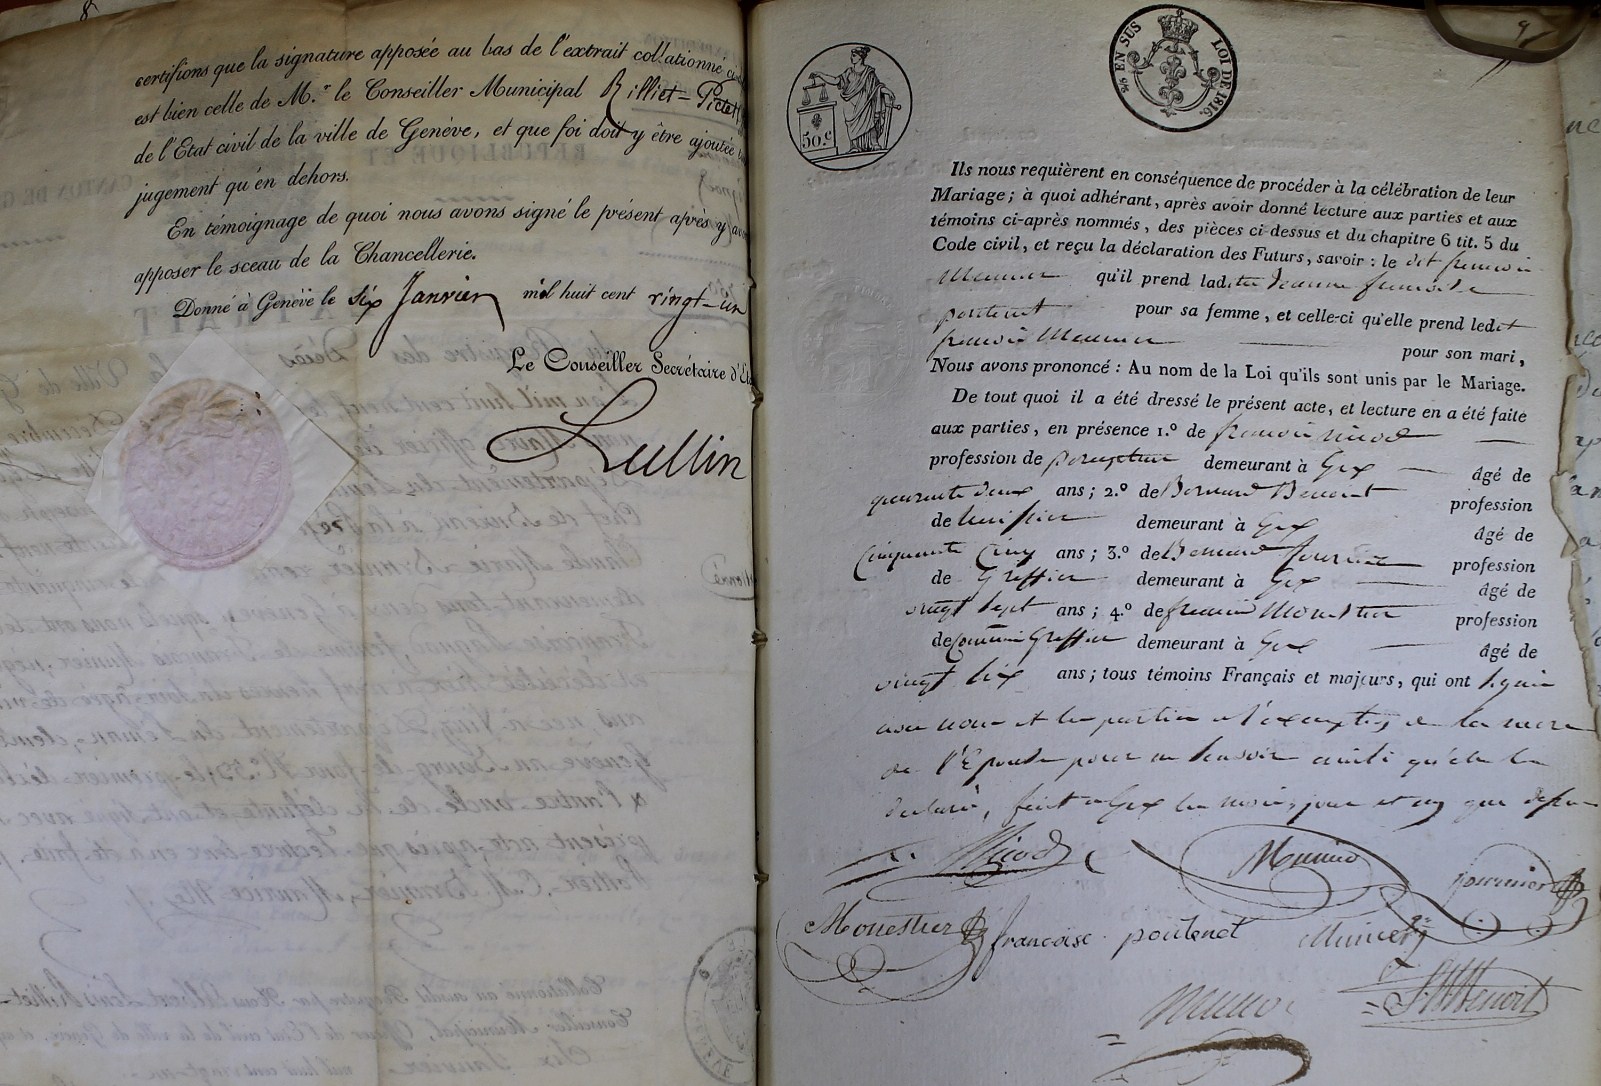 8
certifions que la signature apposée au bas de l'extrait collationné
est bien celle de M.r le Conseiller Municipal Rilliet-Pictet
de l'Etat civil de la ville de Genève, et que foi doit y être ajoutée
jugement qu'en dehors.
En témoignage de quoi nous avons signé le présent après y
apposer le sceau de la Chancellerie.
Donné à Genève le six Janvier mil huit cent vingt-un
Le Conseiller Secrétaire d'Et
Lullin
50.c
¾ EN SUS LOI DE 1816.
9
Ils nous requièrent en conséquence de procéder à la célébration de leur
Mariage; à quoi adhérant, après avoir donné lecture aux parties et aux
témoins ci-après nommés, des pièces ci-dessus et du chapitre 6 tit. 5 du
Code civil, et reçu la déclaration des Futurs, savoir : le dit françois
Meunier qu'il prend ladite Jeanne françoise
poutenet pour sa femme, et celle-ci qu'elle prend ledit
françois Meunier pour son mari,
Nous avons prononcé : Au nom de la Loi qu'ils sont unis par le Mariage.
De tout quoi il a été dressé le présent acte, et lecture en a été faite
aux parties, en présence 1.º de françois nicod
profession de percepteur demeurant à Gex âgé de
quarante deux ans; 2.º de Bernard Benoit profession
de huissier demeurant à Gex âgé de
Cinquante Cinq ans; 3.º de Bernard fournier profession
de Greffier demeurant à Gex âgé de
vingt sept ans; 4.º de françois Monestier profession
de Commis Greffier demeurant à Gex âgé de
vingt six ans; tous témoins Français et majeurs, qui ont signé
avec nous et les parties a l'exception de la mere
de l'Epouse pour ne savoir ainsi qu'elle l'a
declaré, fait a Gex les mois, jour et an que dessus
Nicod Munier fournier
Monestier francoise poutenet Munier
Benoit